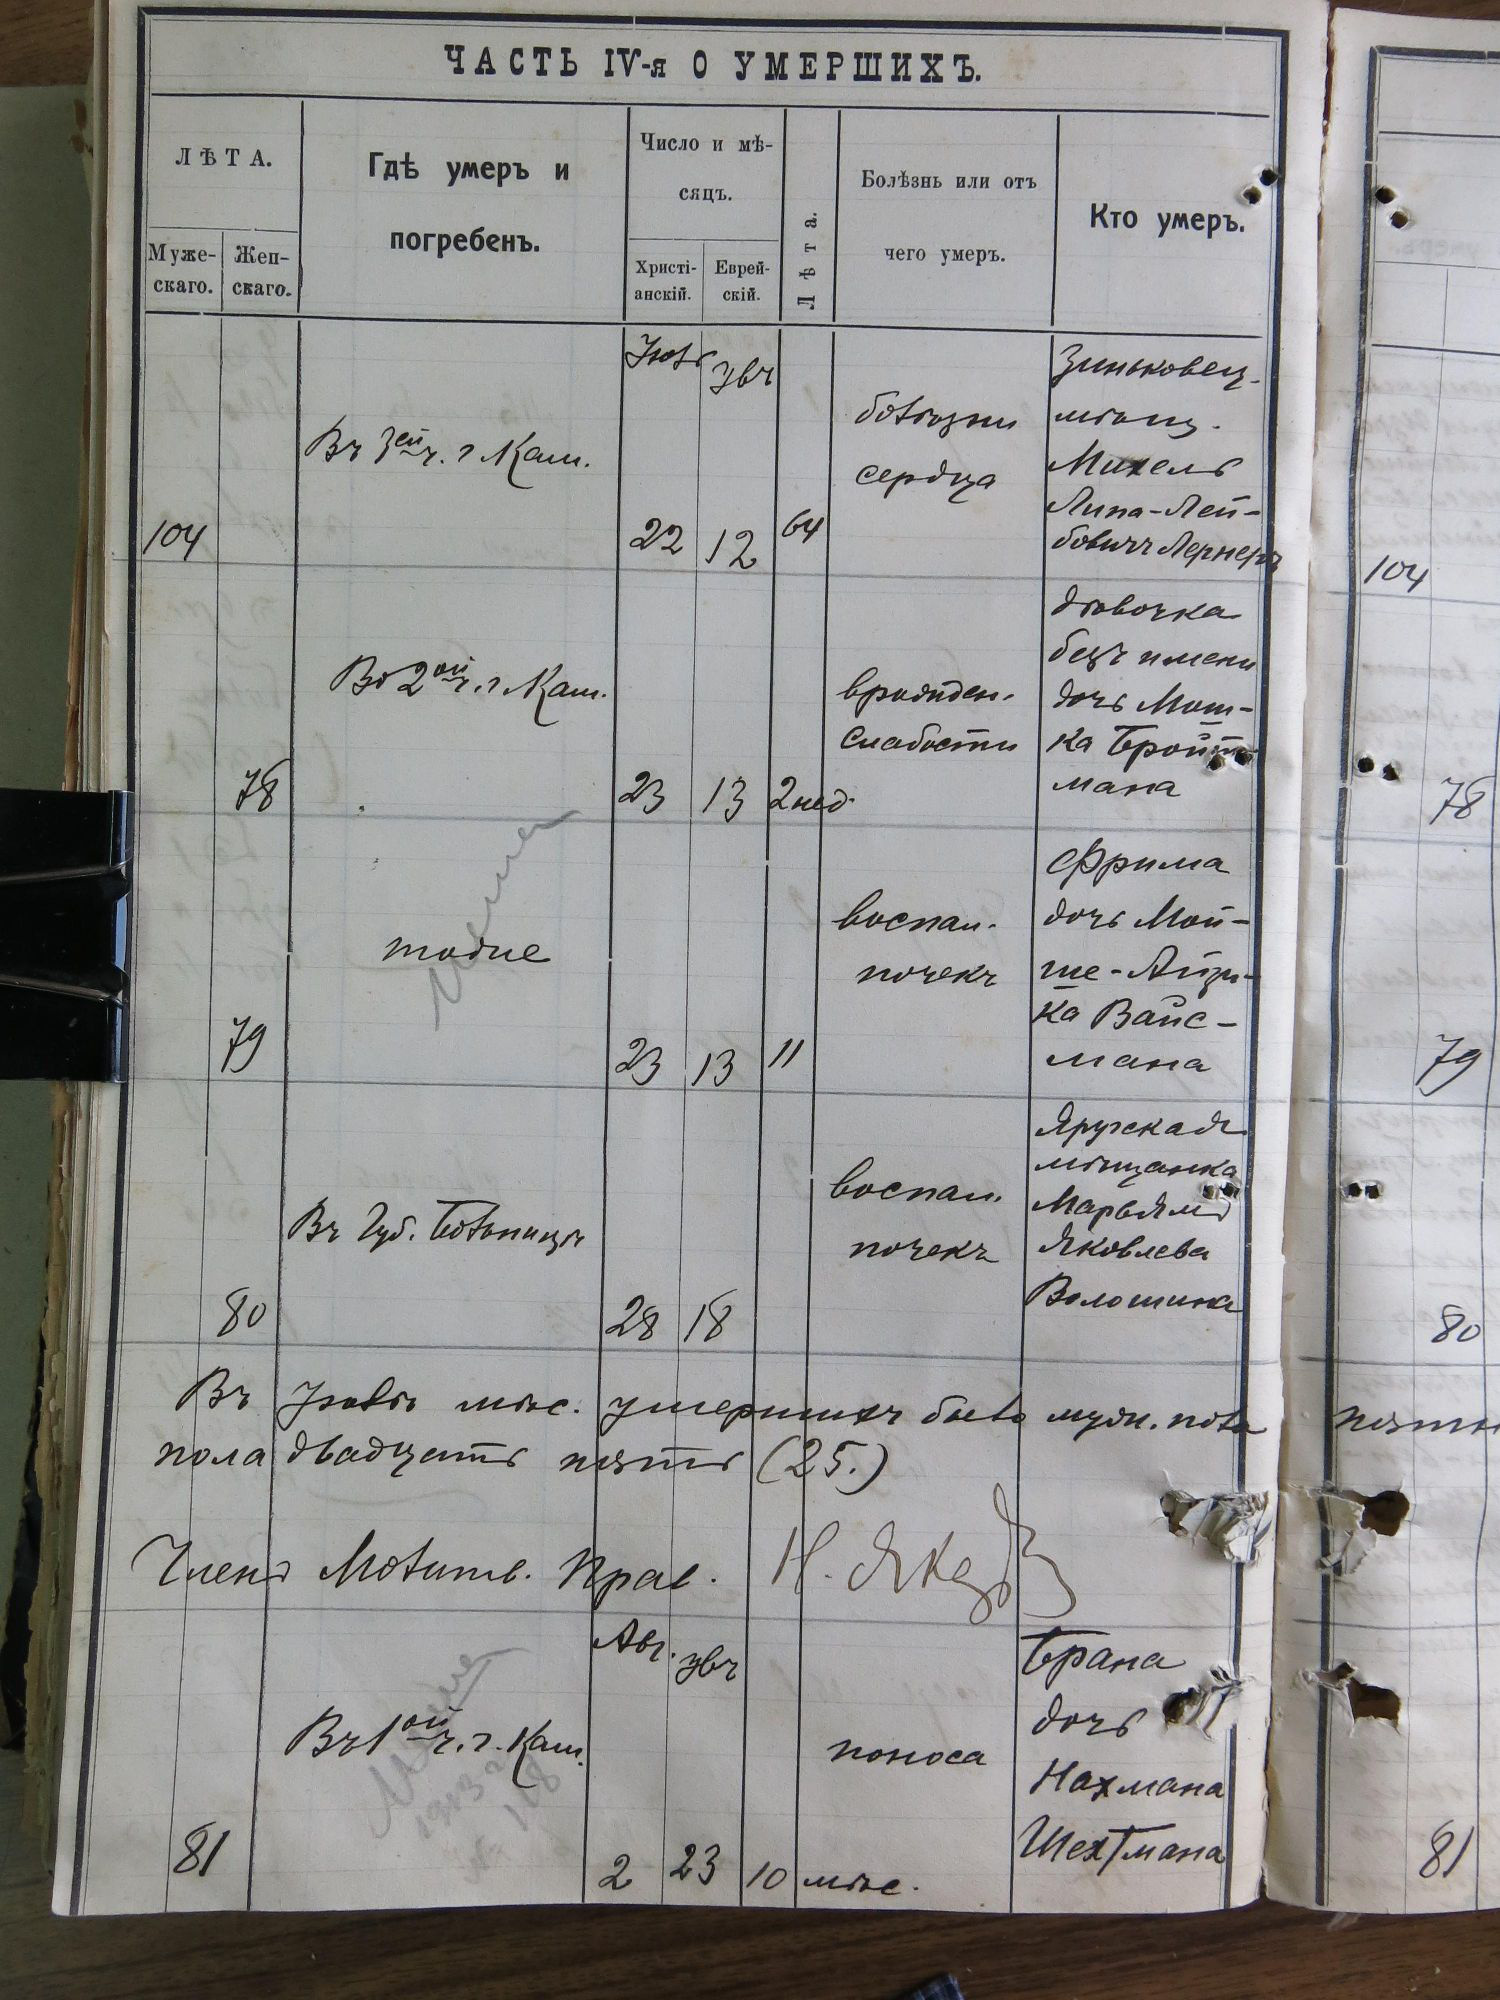 ЧАСТЬ IV-я О УМЕРШИХЪ.
ЛѢТА.
Муже-
скаго.
Жен-
скаго.
Гдѣ умеръ и
погребенъ.
Число и мѣ-
сяцъ.
Христі-
анскій.
Еврей-
скій.
Лѣта.
Болѣзнь или отъ
чего умеръ.
Кто умеръ.
104
Въ 3ей ч. г. Кам.
Іюль
22
Увъ
12
64
болѣзни
сердца
Зиньковец.
мѣщ.
Михель
Липа-Лей-
бовичъ Лернеръ
104
78
Во 2ой ч. г. Кам.
23
13
2 нед.
врожден.
слабости
дѣвочка
безъ имени
дочь Мош-
ка Бройт-
мана
78
79
тоже
23
13
11
воспал.
почекъ
Фрима
дочь Мой-
ше-Айзи-
ка Вайс-
мана
79
80
Въ Губ. Больницѣ
28
18
воспал.
почекъ
Яругская
мѣщанка
Марьямъ
Яковлева
Волошина
80
Въ Іюлѣ мѣс. умершихъ было муж. пола
пола двадцать пять (25.)
Членъ Молитв. Прав.
81
Въ 1ой ч. г. Кам.
Авг.
2
Увъ
23
10 мѣс.
поноса
Брана
дочь
Нахмана
Шехтмана
81